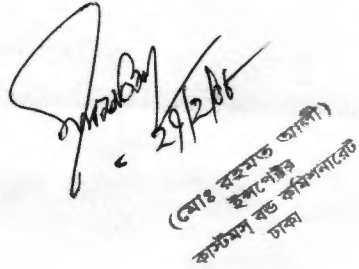 ২৭/২/০৮
(মোঃ রহমত আলী)
ইন্সপেক্টর
কাস্টমস বন্ড কমিশনারেট
ঢাকা